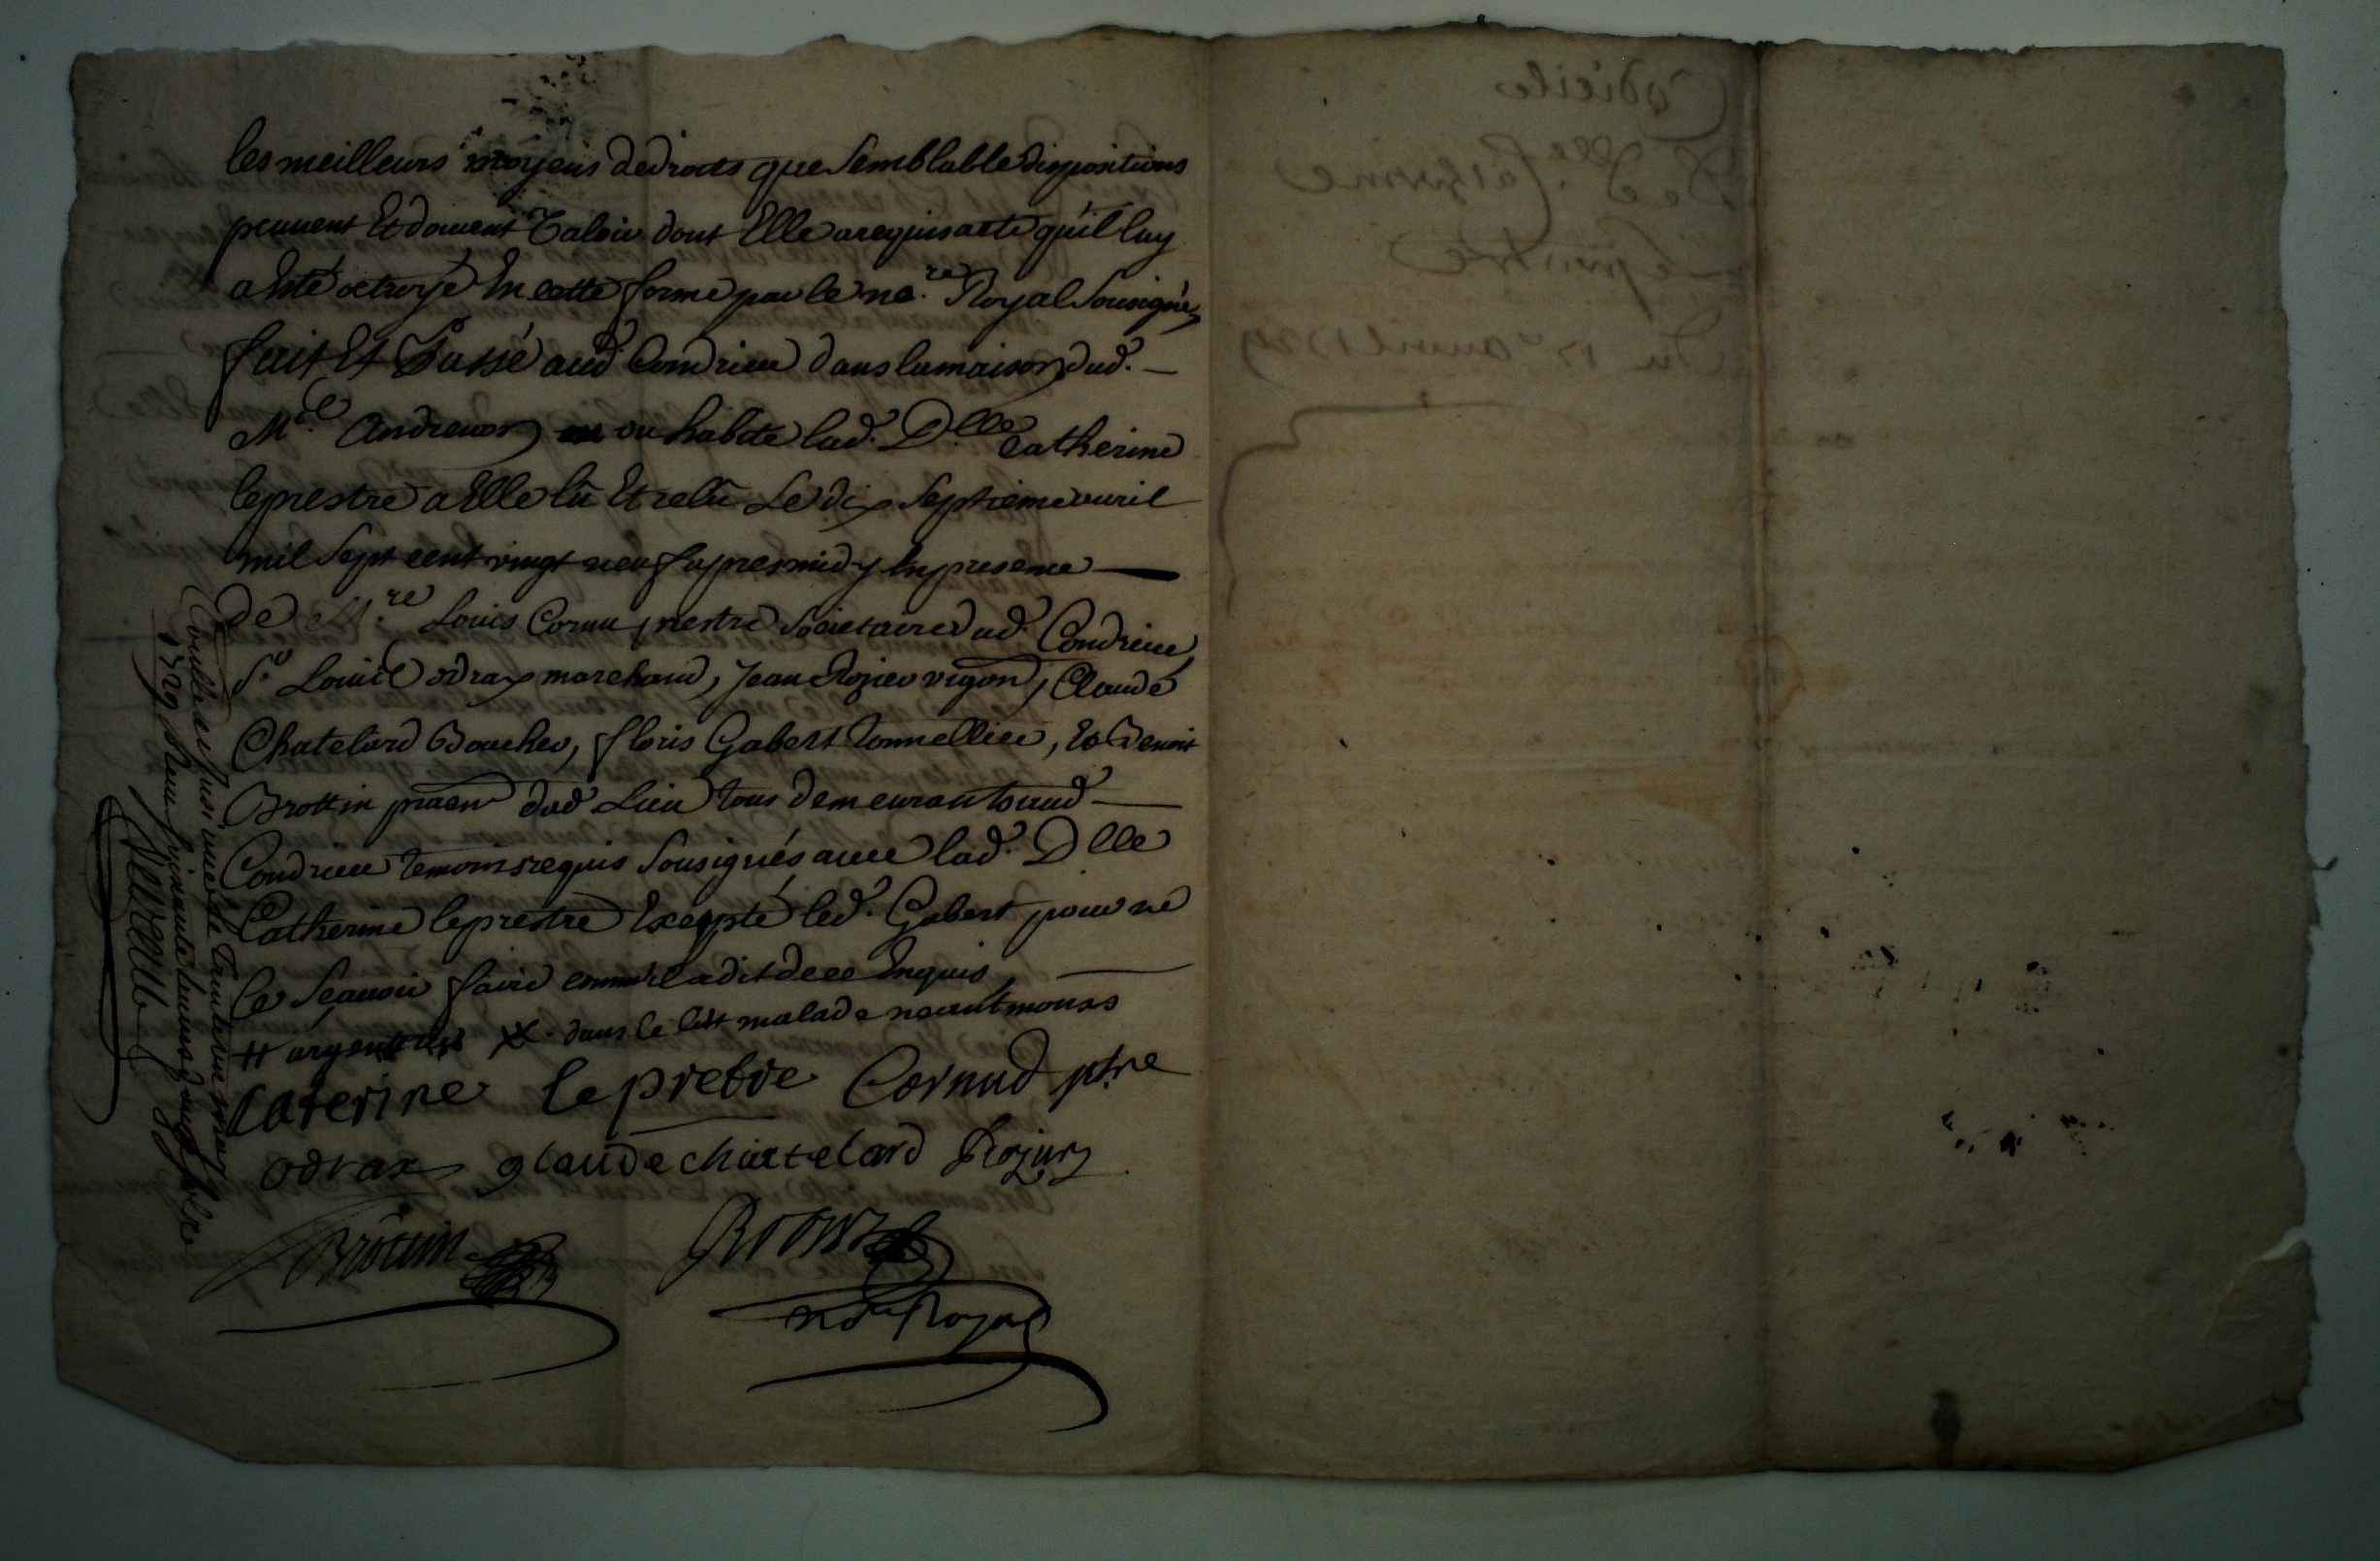 les meilleurs moyens de droits que semblable dispositions
peuuent Et doiuent Valoir dont Elle a requis acte qu'il luy
a Esté octroyé En cette forme par le no.re Royal sousigné,
fait Et Passé aud. Condrieu dans la maison dud. —
M.e Andrieux ou habite lad. D.lle Catherine
leprestre a Elle lû Et relû Le dix septieme auril
mil sept cent vingt neuf apres midy En presence —
de M.re Louis Cornu prestre societaire dud. Condrieu
S.r Louis Odrax marchand, Jean Rozier vigon, Claude
Chatelard Boucher, floris Gabert Tonnellier, Et Benoit
Brottin praen dud. Lieu tous demeurants aud. —
Condrieu temoins requis sousignés auec lad. D.lle
Catherine leprestre Excepté led. Gabert pour ne
le sçauoir faire comme il a dit de ce Enquis —
# argent X dans le litt malade neantmoins
Caterine le prebre Cornud ptre
odrax glaude chattelard Rozier
Brottin
no.re Royal
Condrieu
1729
Codicile
De d.lle Caterine
Leprestre
Du 17e auril 1729